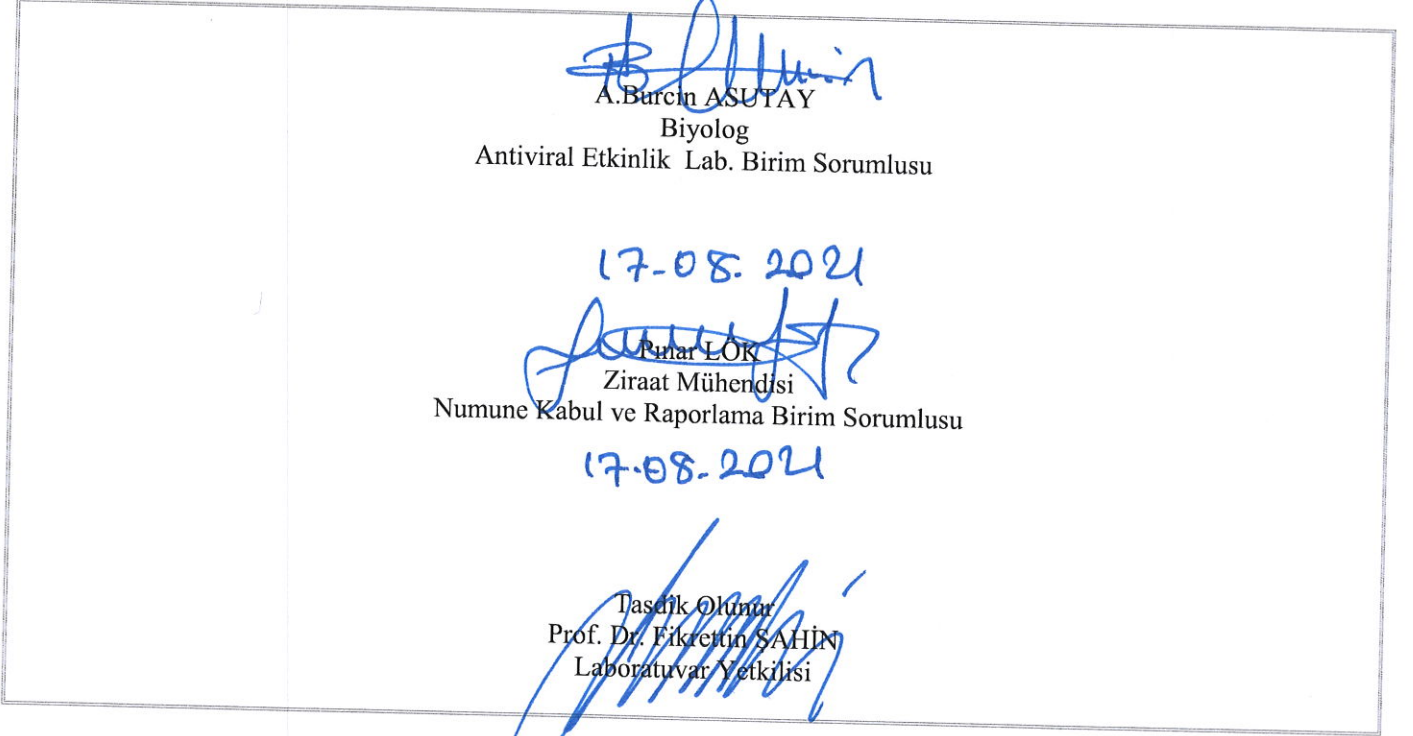 A.Burcin ASUTAY
Biyolog
Antiviral Etkinlik Lab. Birim Sorumlusu
17-08. 2021
Pınar LÖK
Ziraat Mühendisi
Numune Kabul ve Raporlama Birim Sorumlusu
17.08.2021
Tasdik Olunur
Prof. Dr. Fikrettin ŞAHİN
Laboratuvar Yetkilisi